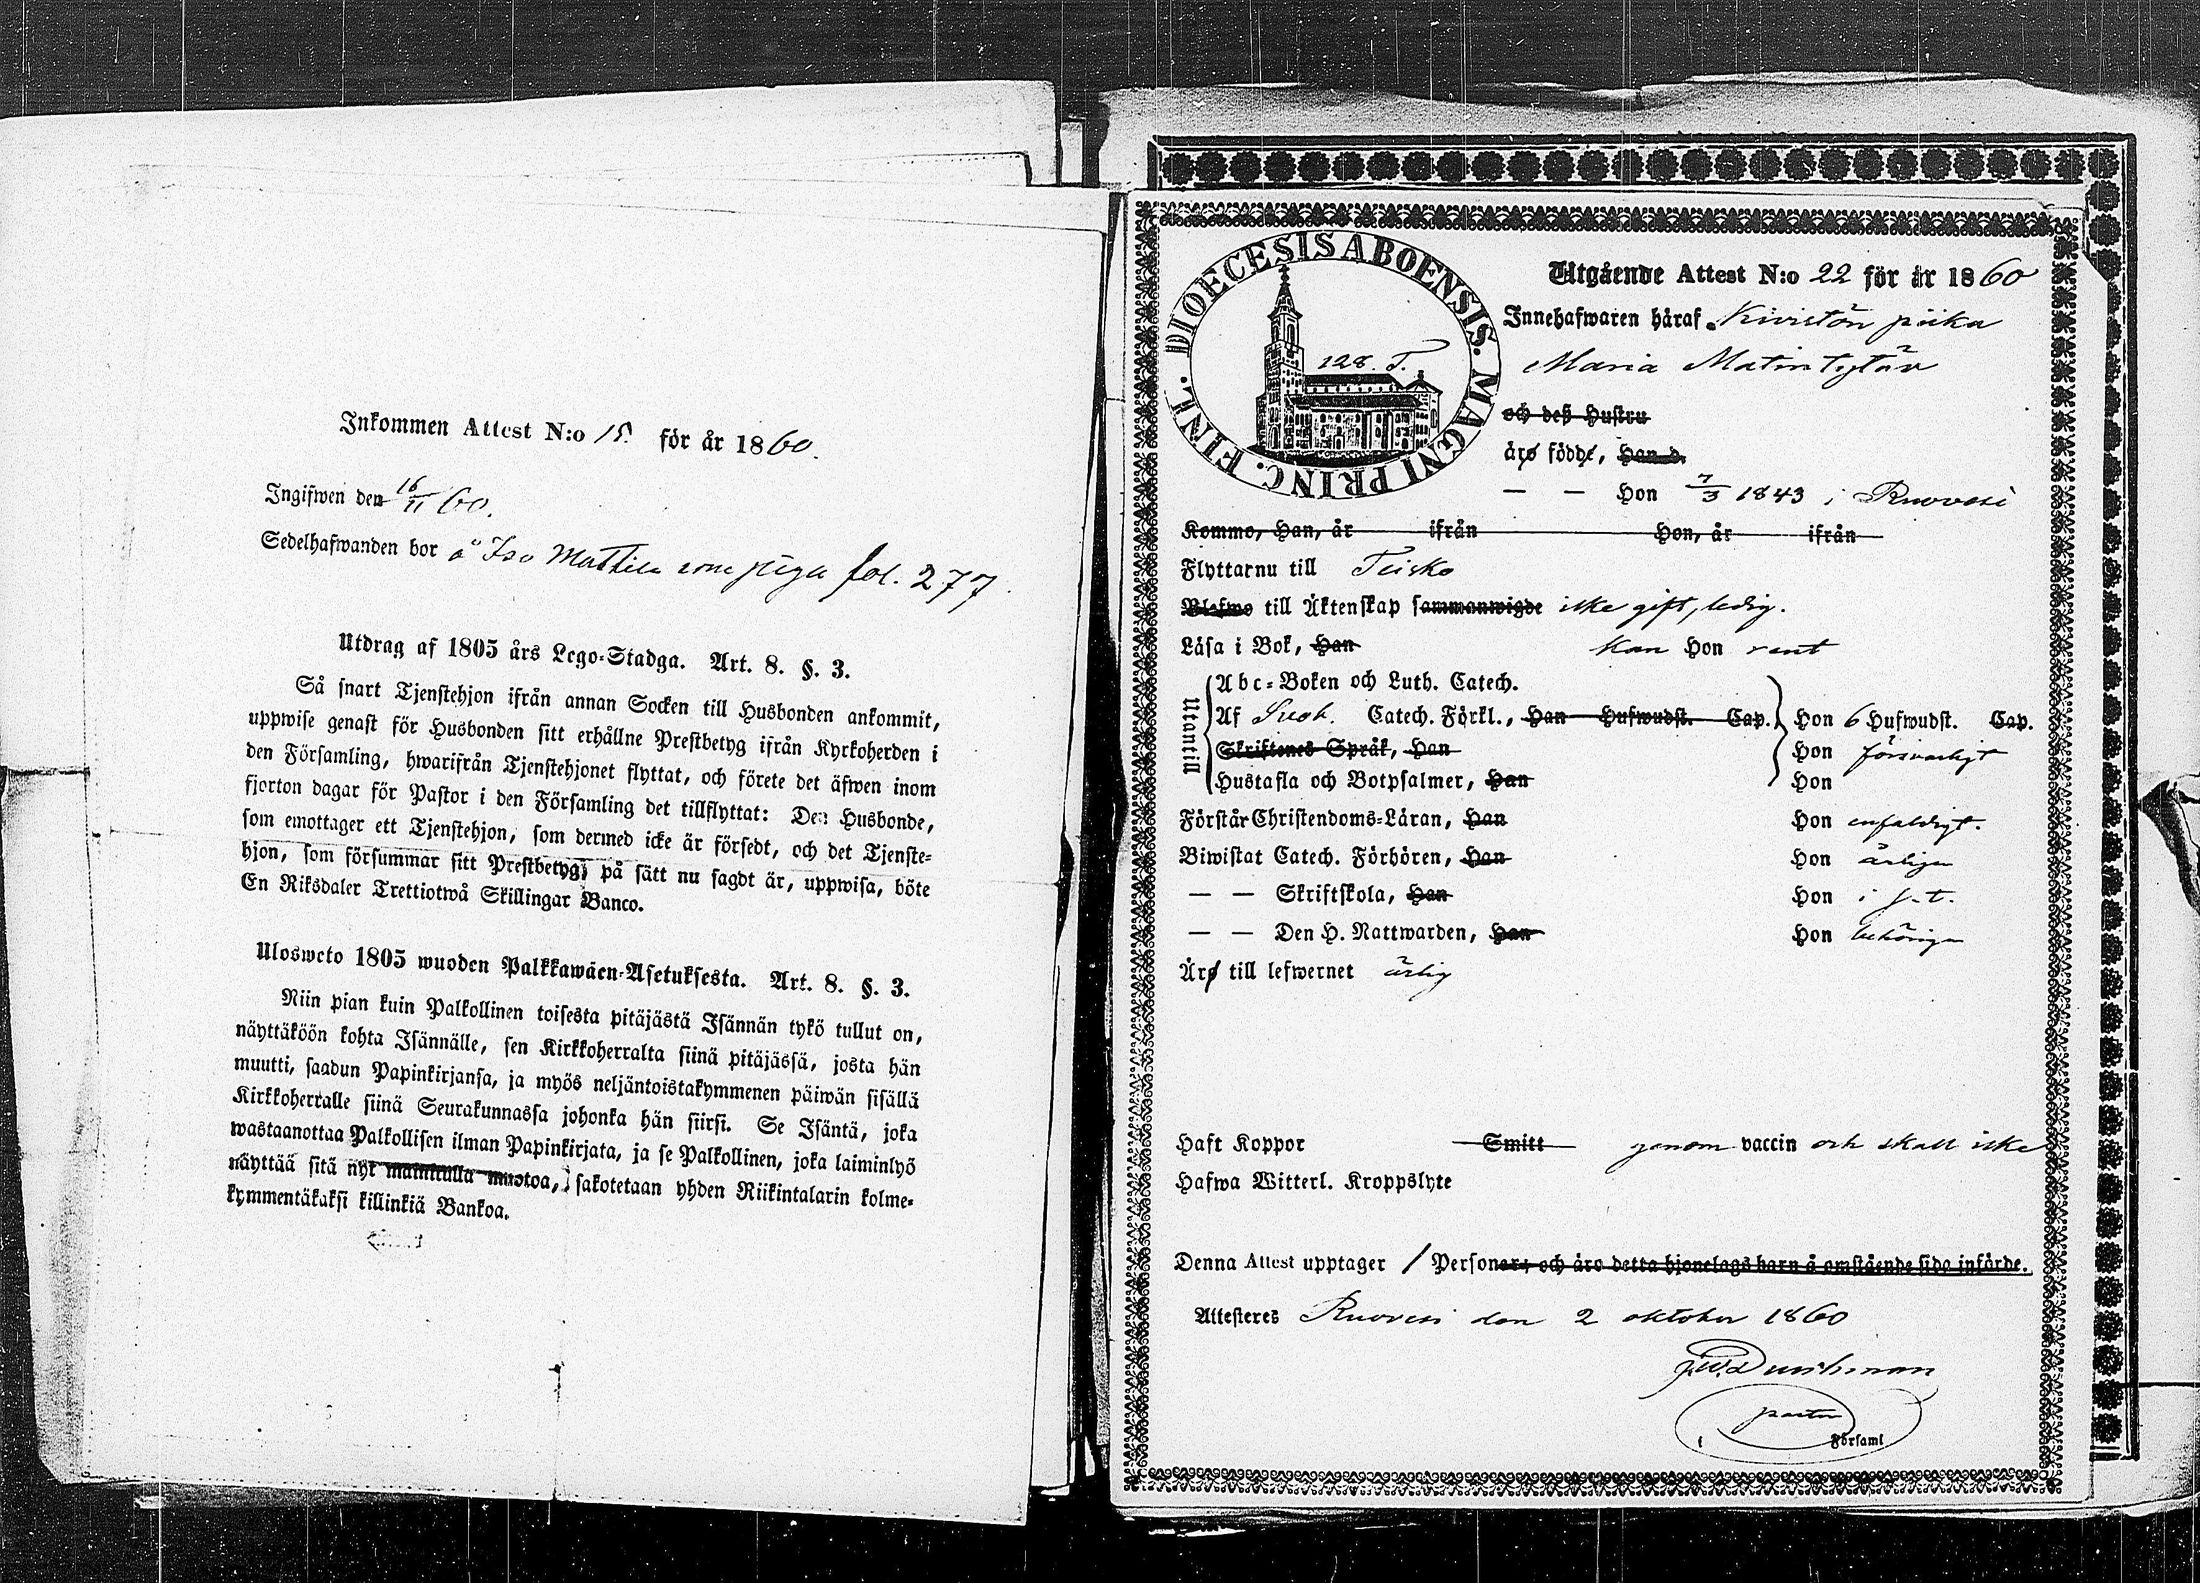 Inkommen Attest N:o 15. för år 1860.
Ingifwen den 16/11 60.
Sedelhafwanden bor å Iso Mattila som piga fol. 277.
Utdrag af 1805 års Lego-Stadga. Art. 8. §. 3.
Så snart Tjenstehjon ifrån annan Socken till Husbonden ankommit,
uppwise genast för Husbonden sitt erhållne Prestbetyg ifrån Kyrkoherden i
den Församling, hwarifrån Tjenstehjonet flyttat, och förete det äfwen inom
fjorton dagar för Pastor i den Församling det tillflyttat: Den Husbonde,
som emottager ett Tjenstehjon, som dermed icke är försedt, och det Tjenste-
hjon, som försummar sitt Prestbetyg, på sätt nu sagdt är, uppwisa, böte
En Riksdaler Trettiotwå Skillingar Banco.
Ulosweto 1805 wuoden Palkkawäen-Asetuksesta. Art. 8. §. 3.
Niin pian kuin Palkollinen toisesta pitäjästä Isännän tykö tullut on,
näyttäköön kohta Isännälle, sen Kirkkoherralta siinä pitäjässä, josta hän
muutti, saadun Papinkirjansa, ja myös neljäntoistakymmenen päiwän sisällä
Kirkkoherralle siinä Seurakunnassa johonka hän siirsi. Se Isäntä, joka
wastaanottaa Palkollisen ilman Papinkirjata, ja se Palkollinen, joka laiminlyö
näyttää sitä nyt mainitulla muotoa, sakotetaan yhden Riikintalarin kolme-
kymmentäkaksi killinkiä Bankoa.
DIOECESIS ABOENSIS. MAGNI PRINC. FINL.
128. T.
Utgående Attest N:o 22 för år 1860
Innehafwaren häraf Kivistön piika
Maria Matintytär
och deß Hustru
äro födde, Han d.
— — Hon 7/3 1843 i Ruovesi
Kommo, Han, år ifrån Hon, år ifrån
Flyttarnu till Teisko
Blefwo till Äktenskap sammanwigde icke gift, ledig.
Läsa i Bok, Han kan Hon rent
Utantill
Abc-Boken och Luth. Catech.
Af Sveb. Catech. Förkl., Han Hufwudst. Cap. Hon 6 Hufwudst. Cap.
Skriftenes Språk, Han Hon försvarligt
Hustafla och Botpsalmer, Han Hon
Förstår Christendoms-Läran, Han Hon enfaldigt.
Biwistat Catech. Förhören, Han Hon årligen
— — Skriftskola, Han Hon i f. t.
— — Den H. Nattwarden, Han Hon behörigen
Äro till lefwernet ärlig
Haft Koppor Smitt genom vaccin och skall icke
Hafwa Witterl. Kroppslyte
Denna Attest upptager 1 Personer; och äro detta hjonelags barn å omstående sida införde.
Attesteres Ruovesi den 2 oktober 1860
pastor
i Församl